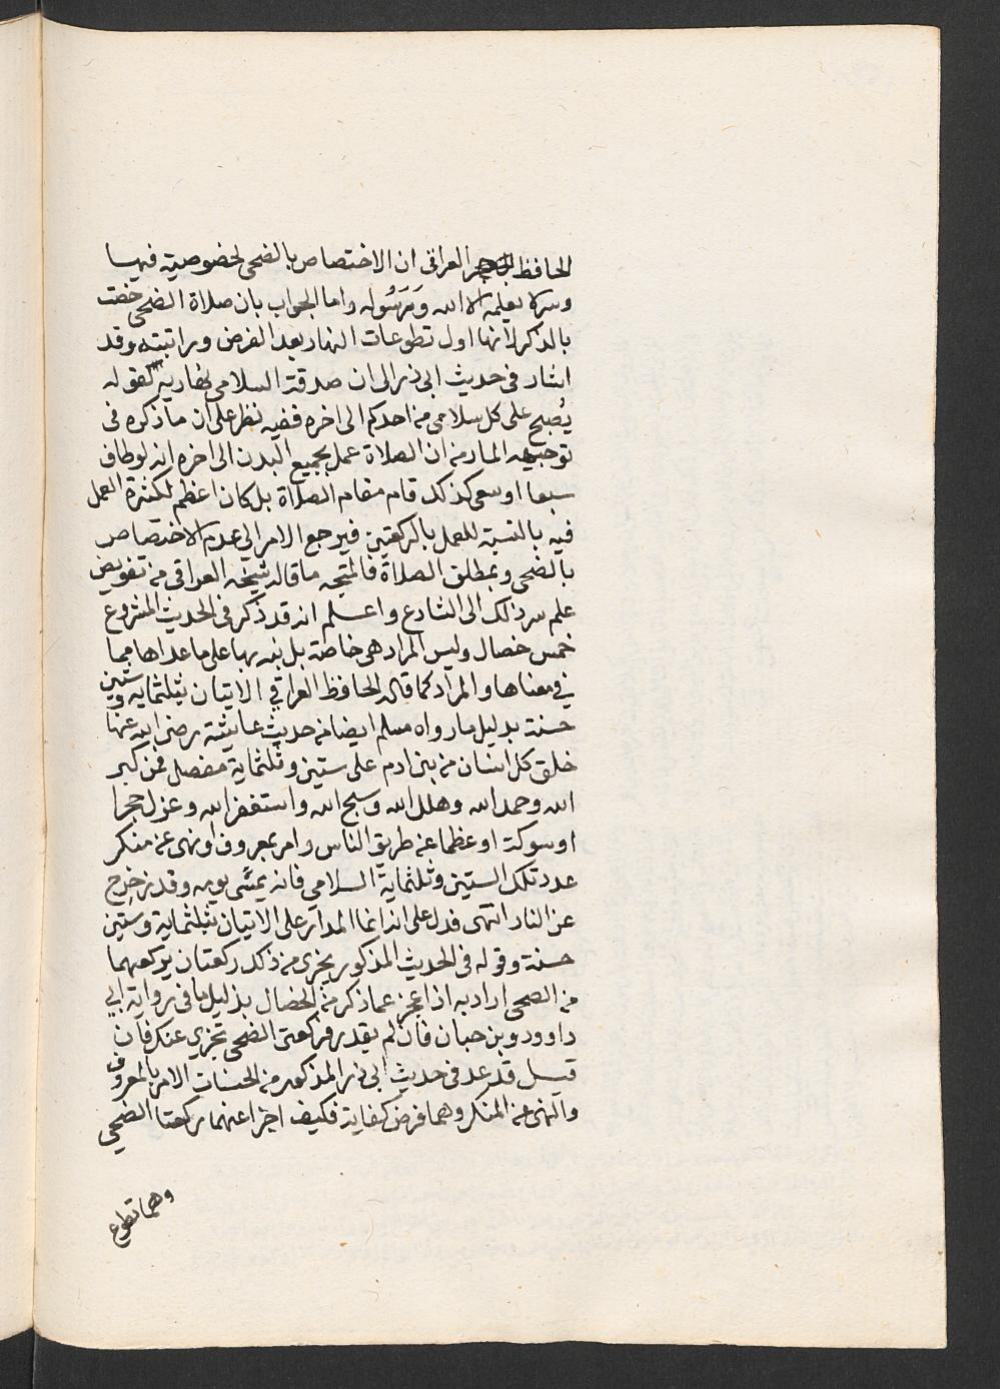 الحافظ العراقي ان الاختصاص بالضحى لخصوصية فيها
وسر لا يعلمه الا الله ورسوله واما الجواب بان صلاة الضحى خصت
بالذكر لانها اول تطوعات النهار بعد الفرض وراتبته وقد
اشار في حديث ابي ذر الى ان صدقة السلامى نهارية لقوله
يُصبح على كل سلامى من احدكم الى اخره ففيه نظر على ان ما ذكره في
توجيهه المار من ان الصلاة عمل بجميع البدن الى اخره انه لو طاف
سبعا او سعى كذلك قام مقام الصلاة بل كان اعظم لكثرة العمل
فيه بالنسبة للعمل بالركعتين فيرجع الامر الى عدم الاختصاص
بالضحى وبمطلق الصلاة فالمتجه ما قاله شيخه العراقي من تفويض
علم سر ذلك الى الشارع واعلم انه قد ذكر في الحديث المشروع
خمس خصال وليس المراد هي خاصة بل نبه بها على ما عداها مما
في معناها والمراد كما قاله الحافظ العراقي الاتيان بثلثماية وستين
حسنة بدليل ما رواه مسلم ايضا من حديث عايشة رضي الله عنها
خلق كل انسان من بني ادم على ستين وثلثماية مفصل فمن كبر
الله وحمد الله وهلل الله وسبح الله واستغفر الله وعزل حجرا
او شوكة او عظما عن طريق الناس وامر بمعروف او نهى عن منكر
عدد تلك الستين وثلثماية السلامي فانه يمشي يومه وقد زحزح
عن النار انتهى فدل على انه انما المدار على الاتيان بثلثماية وستين
حسنة وقوله في الحديث المذكور يجزي من ذلك ركعتان يركعهما
من الضحى اراد به اذا عجز عما ذكر من الخصال بدليل ما في رواية ابي
داوود وبن حبان فان لم يقدر فركعتى الضحى تجزي عنك فان
قيل قد عد في حديث ابي ذر المذكور من الحسنات الامر بالمعروف
والنهي عن المنكر وهما فرض كفاية فكيف اجزا عنهما ركعتا الضحى
وهما تطوع